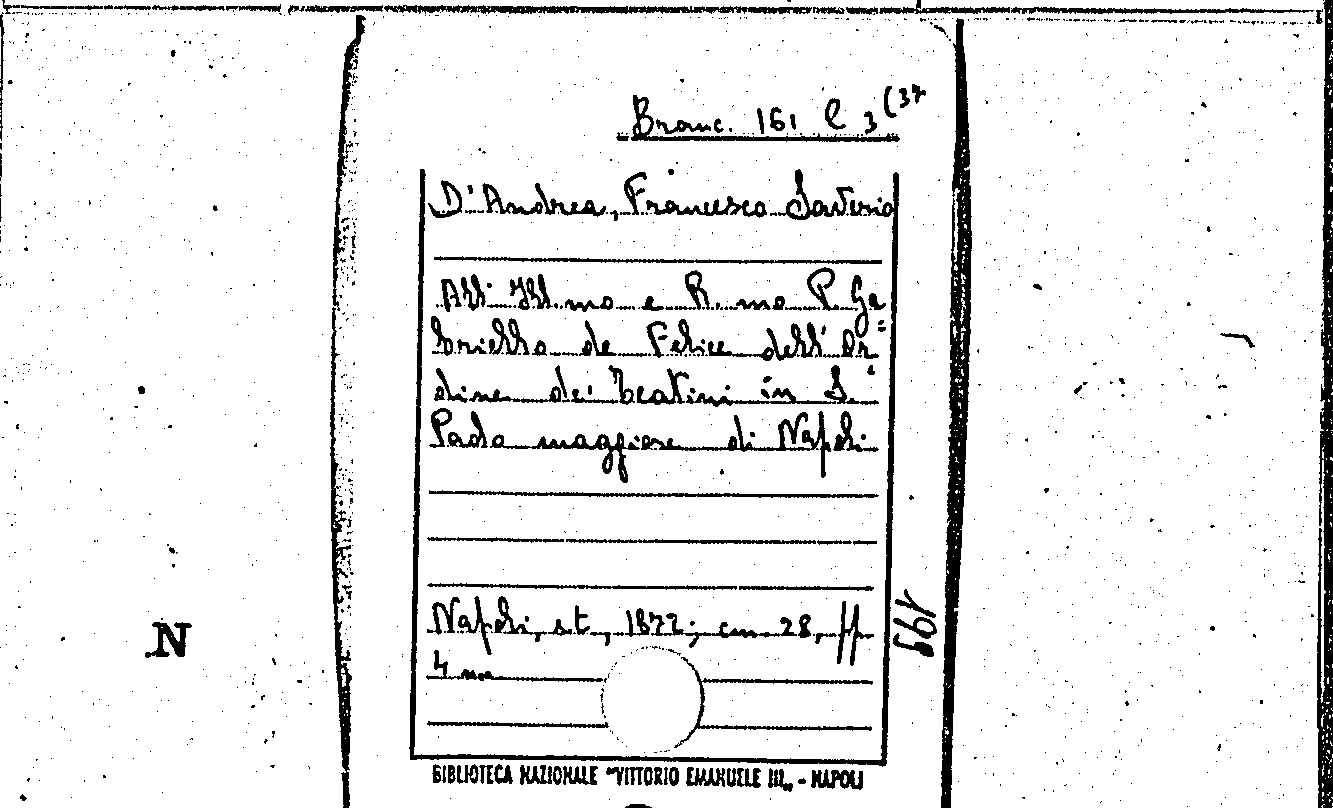 Branc. 161 C 3 (37
D'Andrea, Francesco Saverio
All' Ill.mo e R.mo P. Ga=
briello de Felice dell' Or=
dine de' Teatini in S.
Paolo maggiore di Napoli
Napoli, s.t., 1872; cm. 28, ff
4 nn
199
N
BIBLIOTECA NAZIONALE "VITTORIO EMANUELE III„ - NAPOLI